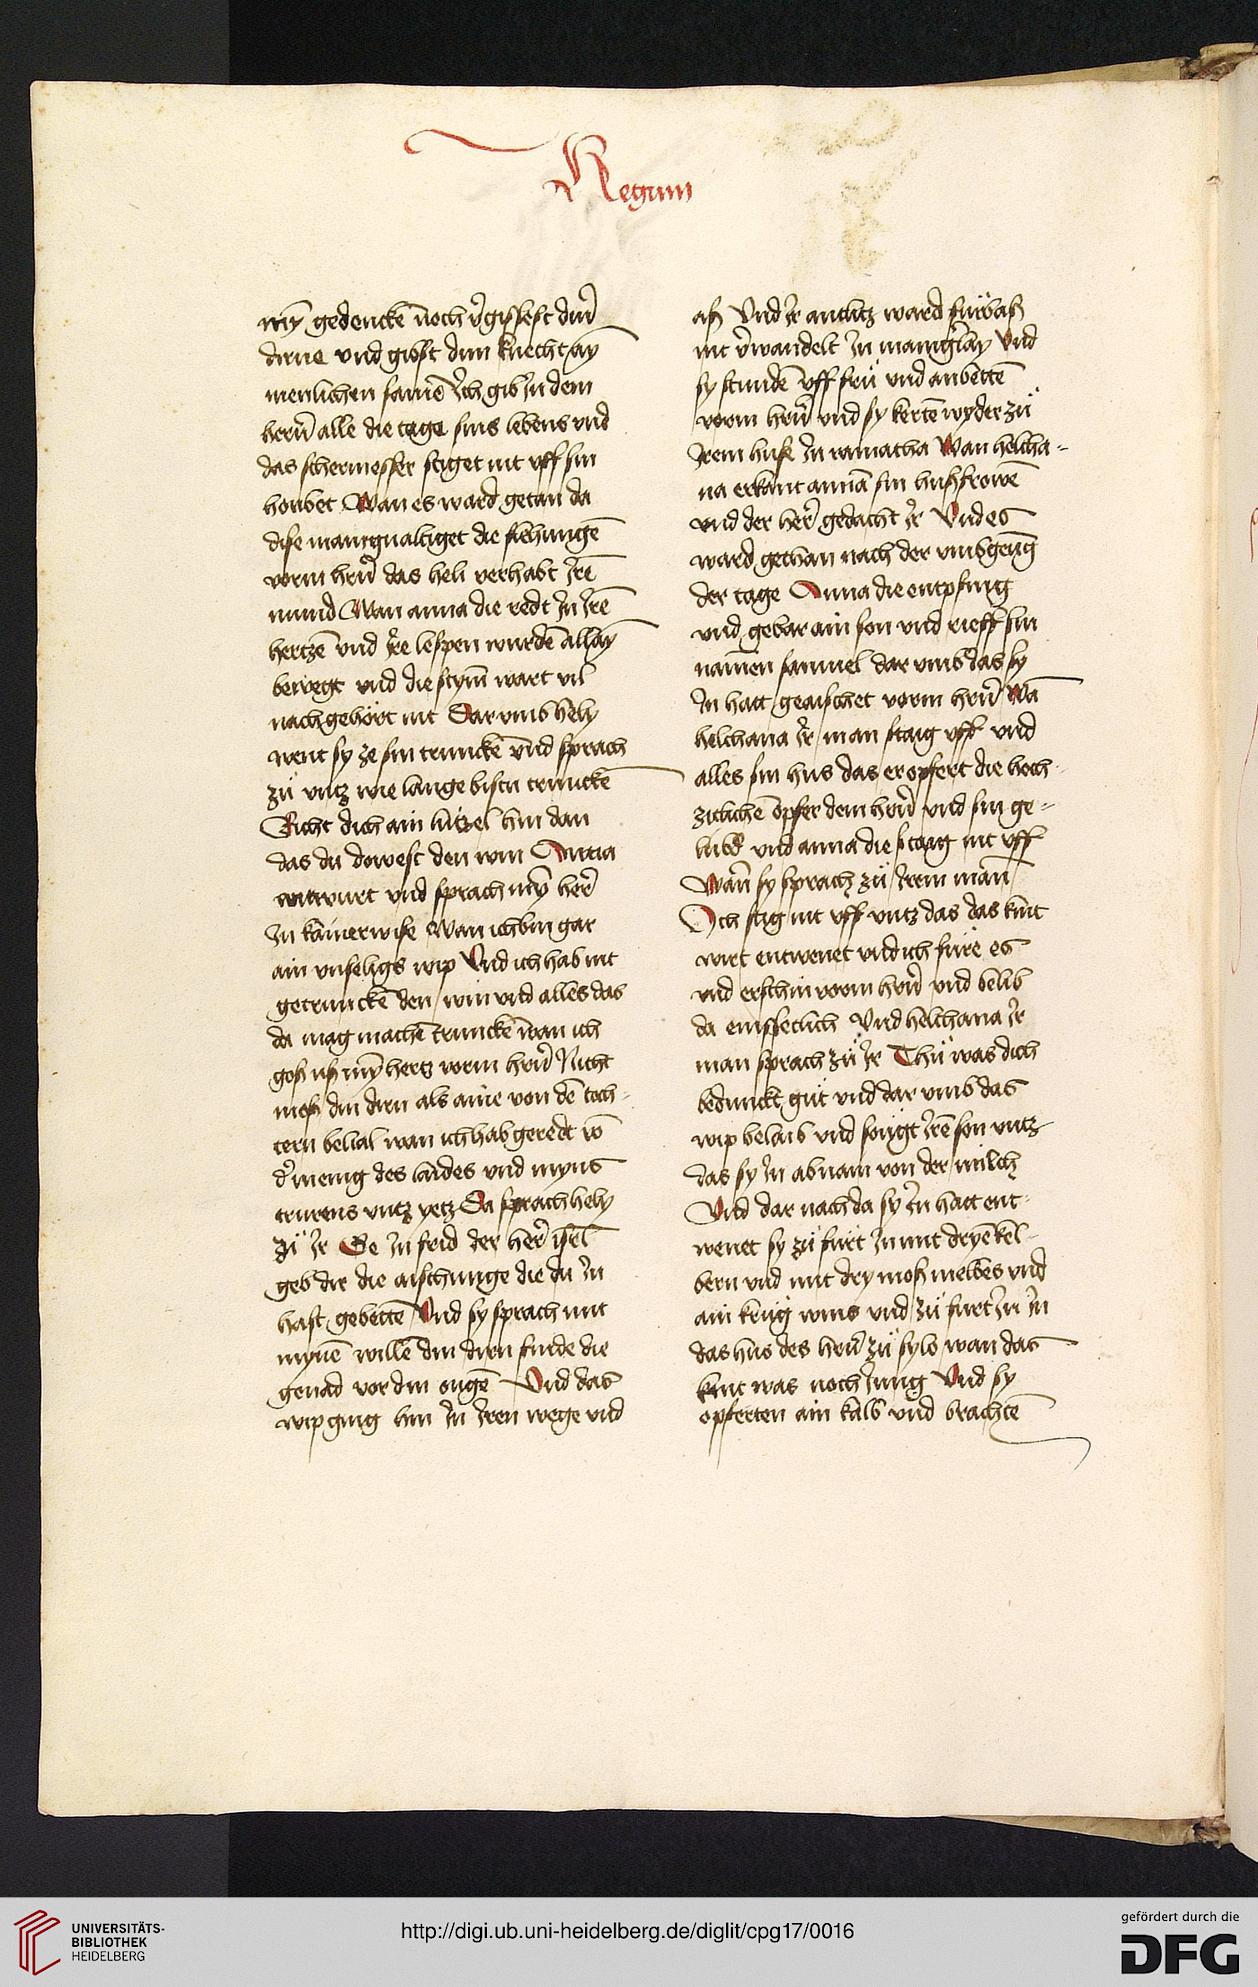 Regum
my̅ gedencke̅ noch v̓gissest din̓
dirne vnd gibst dim knecht ay̅
menlichen same̅ Ich gib In dem
hern̓ alle die tage sins lebens vnd
das schermesser stiget nit vff sin
houbet Wan es ward getan da
dise manigualtiget die flehunge̅
vorm hrn̓ das heli verhabt Ire̅
mund Wan anna die redt In Ire̅
hertze̅ vnd Ire lespen wurde̅ allay̅
bewegt vnd die stym̅ wart vil
nach gehört nit Dar vmb hely
went sy ze sin truncke̅ vnd sprach
zů vntz wie lange bistu truncke̅
Richt dich ain lützel hin dan
das du dowest den win Anna
antwurt vnd sprach my̅ her̓
In kainerwise Wan ich bin gar
ain vnseligs wip Vnd ich hab nit
getruncke̅ den win vnd alles das
da mag mache̅ truncke̅ wan ich
goß vß my̅ hertz vorm hrn̓ Nicht
meß din dirn als aine von de̅ toch-
tern belial wan ich hab geredt vo̅
d̓ menig des laides vnd myns
trurens vntz yetz Da sprach hely
zů Ir Ge In frid der her̓ isr̓l
geb dir die aischunge die du In
hast gebette̅ Vnd sy sprach mit
myne̅ wille̅ din dirn finde die
genad vor din ouge̅ Vnd das
wip ging hin In Iren wege vnd
aß Vnd Ir antlitz ward fürbaß
nit v̓wandelt In manigslay Vnd
sy stunde̅ vff frü vnd anbette̅
vorm hrn̓ vnd sy kerte̅ wyder zů
Irem huse In ramatha Wan helcha-
na erkant anna̅ sin hußfrowe̅
vnd der her̓ gedacht Ir Vnd es
ward gethan nach der vmbgeng
der tage Anna die entpfing
vnd gebar ain son vnd rieff sin
namen samuel dar vmb das sy
In hatt geaischet vorm hrn̓ Wa̅
helchana Ir man staig vff vnd
alles sin hus das er opfert die hoch-
zitliche̅ opfer dem hrn̓ vnd sin ge-
lübd vnd anna die staig nit vff
Wan̅ sy sprach zů Irem man̅
Ich stig nit vff vntz das das kint
wirt entwenet vnd ich füre es
vnd erschin vorm hrn̓ vnd belib
da emssetlich Vnd helchana Ir
man sprach zů Ir Thů was dich
bedunckt gůt vnd dar vmb das
wip belaib vnd söugt Ire̅ son vntz
das sy In abnam von der milch
Vnd dar nach da sy In hatt ent-
wenet sy zů fürt In mit drye̅ kel-
bern vnd mit dry moß melbes vnd
ain krůg wins vnd zů fürt In In
das hus des hrn̓ zů sylo wan das
kint was noch Jung Vnd sy
opferten ain kalb vnd brachte̅
UNIVERSITÄTS-
BIBLIOTHEK
HEIDELBERG
http://digi.ub.uni-heidelberg.de/diglit/cpg17/0016
gefördert durch die
DFG